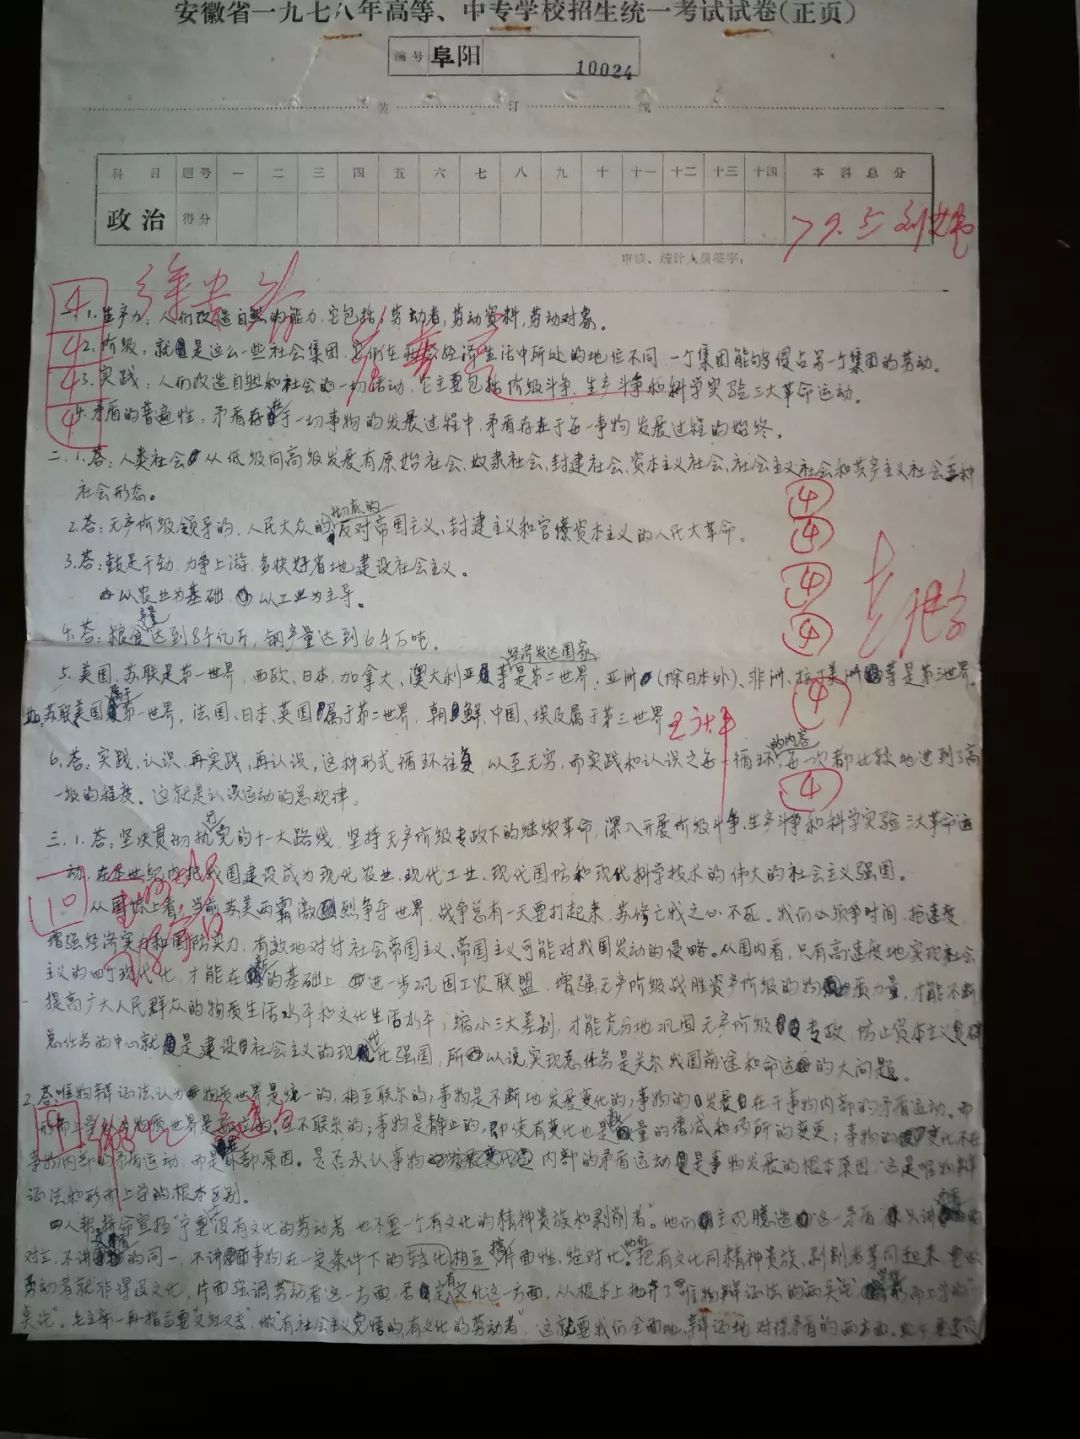 安徽省一九七八年高等、中专学校招生统一考试试卷(正页)
编号 阜阳 10024
装 订 线
科目 题号 一 二 三 四 五 六 七 八 九 十 十一 十二 十三 十四 本科总分
政治 得分 79.5
审核、统计人员签字:
一1.生产力:人们改造自然的能力,它包括,劳动者,劳动资料,劳动对象。
2.阶级:就是这么一些社会集团,它们在经济生活中所处的地位不同,一个集团能够侵占另一个集团的劳动。
3.实践:人们改造自然和社会的一切活动,它主要包括阶级斗争、生产斗争和科学实验三大革命运动。
4.矛盾的普遍性:矛盾存在于一切事物的发展过程中,矛盾存在于每一事物发展过程的始终。
4
4
4
4
二.1.答:人类社会从低级向高级发展有原始社会、奴隶社会、封建社会、资本主义社会、社会主义社会和共产主义社会五种
社会形态。
2.答:无产阶级领导的,人民大众的彻底的反对帝国主义、封建主义和官僚资本主义的人民大革命。
3.答:鼓足干劲,力争上游,多快好省地建设社会主义。
以农业为基础,以工业为主导。
4.答:粮食产量达到8千亿斤,钢产量达到6千万吨。
5.美国、苏联是第一世界,西欧、日本、加拿大、澳大利亚等经济发达国家是第二世界,亚洲(除日本外)、非洲、拉丁美洲等是第三世界。
苏联美国属于第一世界,法国、日本、英国属于第二世界,朝鲜、中国、埃及属于第三世界
6.答:实践、认识、再实践、再认识,这种形式循环往复,以至无穷,而实践和认识之每一循环的内容,每一次都比较地进到了高
一级的程度。这就是认识运动的总规律。
4
4
4
4
4
4
三.1.答:坚决贯彻执行党的十一大路线,坚持无产阶级专政下的继续革命,深入开展阶级斗争、生产斗争和科学实验三大革命运
动,在本世纪内把我国建设成为现代农业、现代工业、现代国防和现代科学技术的伟大的社会主义强国。
10
从国际上看,当前苏美两霸激烈争夺世界,战争总有一天要打起来,苏修亡我之心不死。我们必须争时间,抢速度,
增强经济实力和国防实力,有效地对付社会帝国主义、帝国主义可能对我国发动的侵略。从国内看,只有高速度地实现社会
主义的四个现代化,才能在新的基础上,进一步巩固工农联盟,增强无产阶级战胜资产阶级的物质力量,才能不断
提高广大人民群众的物质生活水平和文化生活水平,缩小三大差别,才能充分地巩固无产阶级专政,防止资本主义复辟
总任务的中心就是建设社会主义的现代化强国,所以说,实现总任务是关系我国前途和命运的大问题。
2.答:唯物辩证法认为物质世界是统一的,相互联系的;事物是不断地发展变化的;事物的发展在于事物内部的矛盾运动。而
形而上学认为物质世界是的,互不联系的;事物是静止的,即使有变化也是量的增减和场所的变更;事物的变化不在
事物内部的矛盾运动,而是外部原因。是否承认事物内部的矛盾运动是事物发展的根本原因,这是唯物辩
证法和形而上学的根本区别。
9
四人帮拼命宣扬"宁要没有文化的劳动者,也不要一个有文化的精神贵族和剥削者"。他们主观臆造这一矛盾,只讲的
对立,不讲的同一,不讲事物在一定条件下的转化,搞片面性,绝对化。他们把有文化同精神贵族、剥削者等同起来,
劳动者就非得没文化,片面强调劳动者这一方面,否定有文化这一方面,从根本上抛弃了唯物辩证法的两点论,形而上学的一
点论。毛主席一再指示要又红又专,做"有社会主义觉悟的有文化的劳动者",这就要我们全面地,辩证地对待矛盾的两方面。